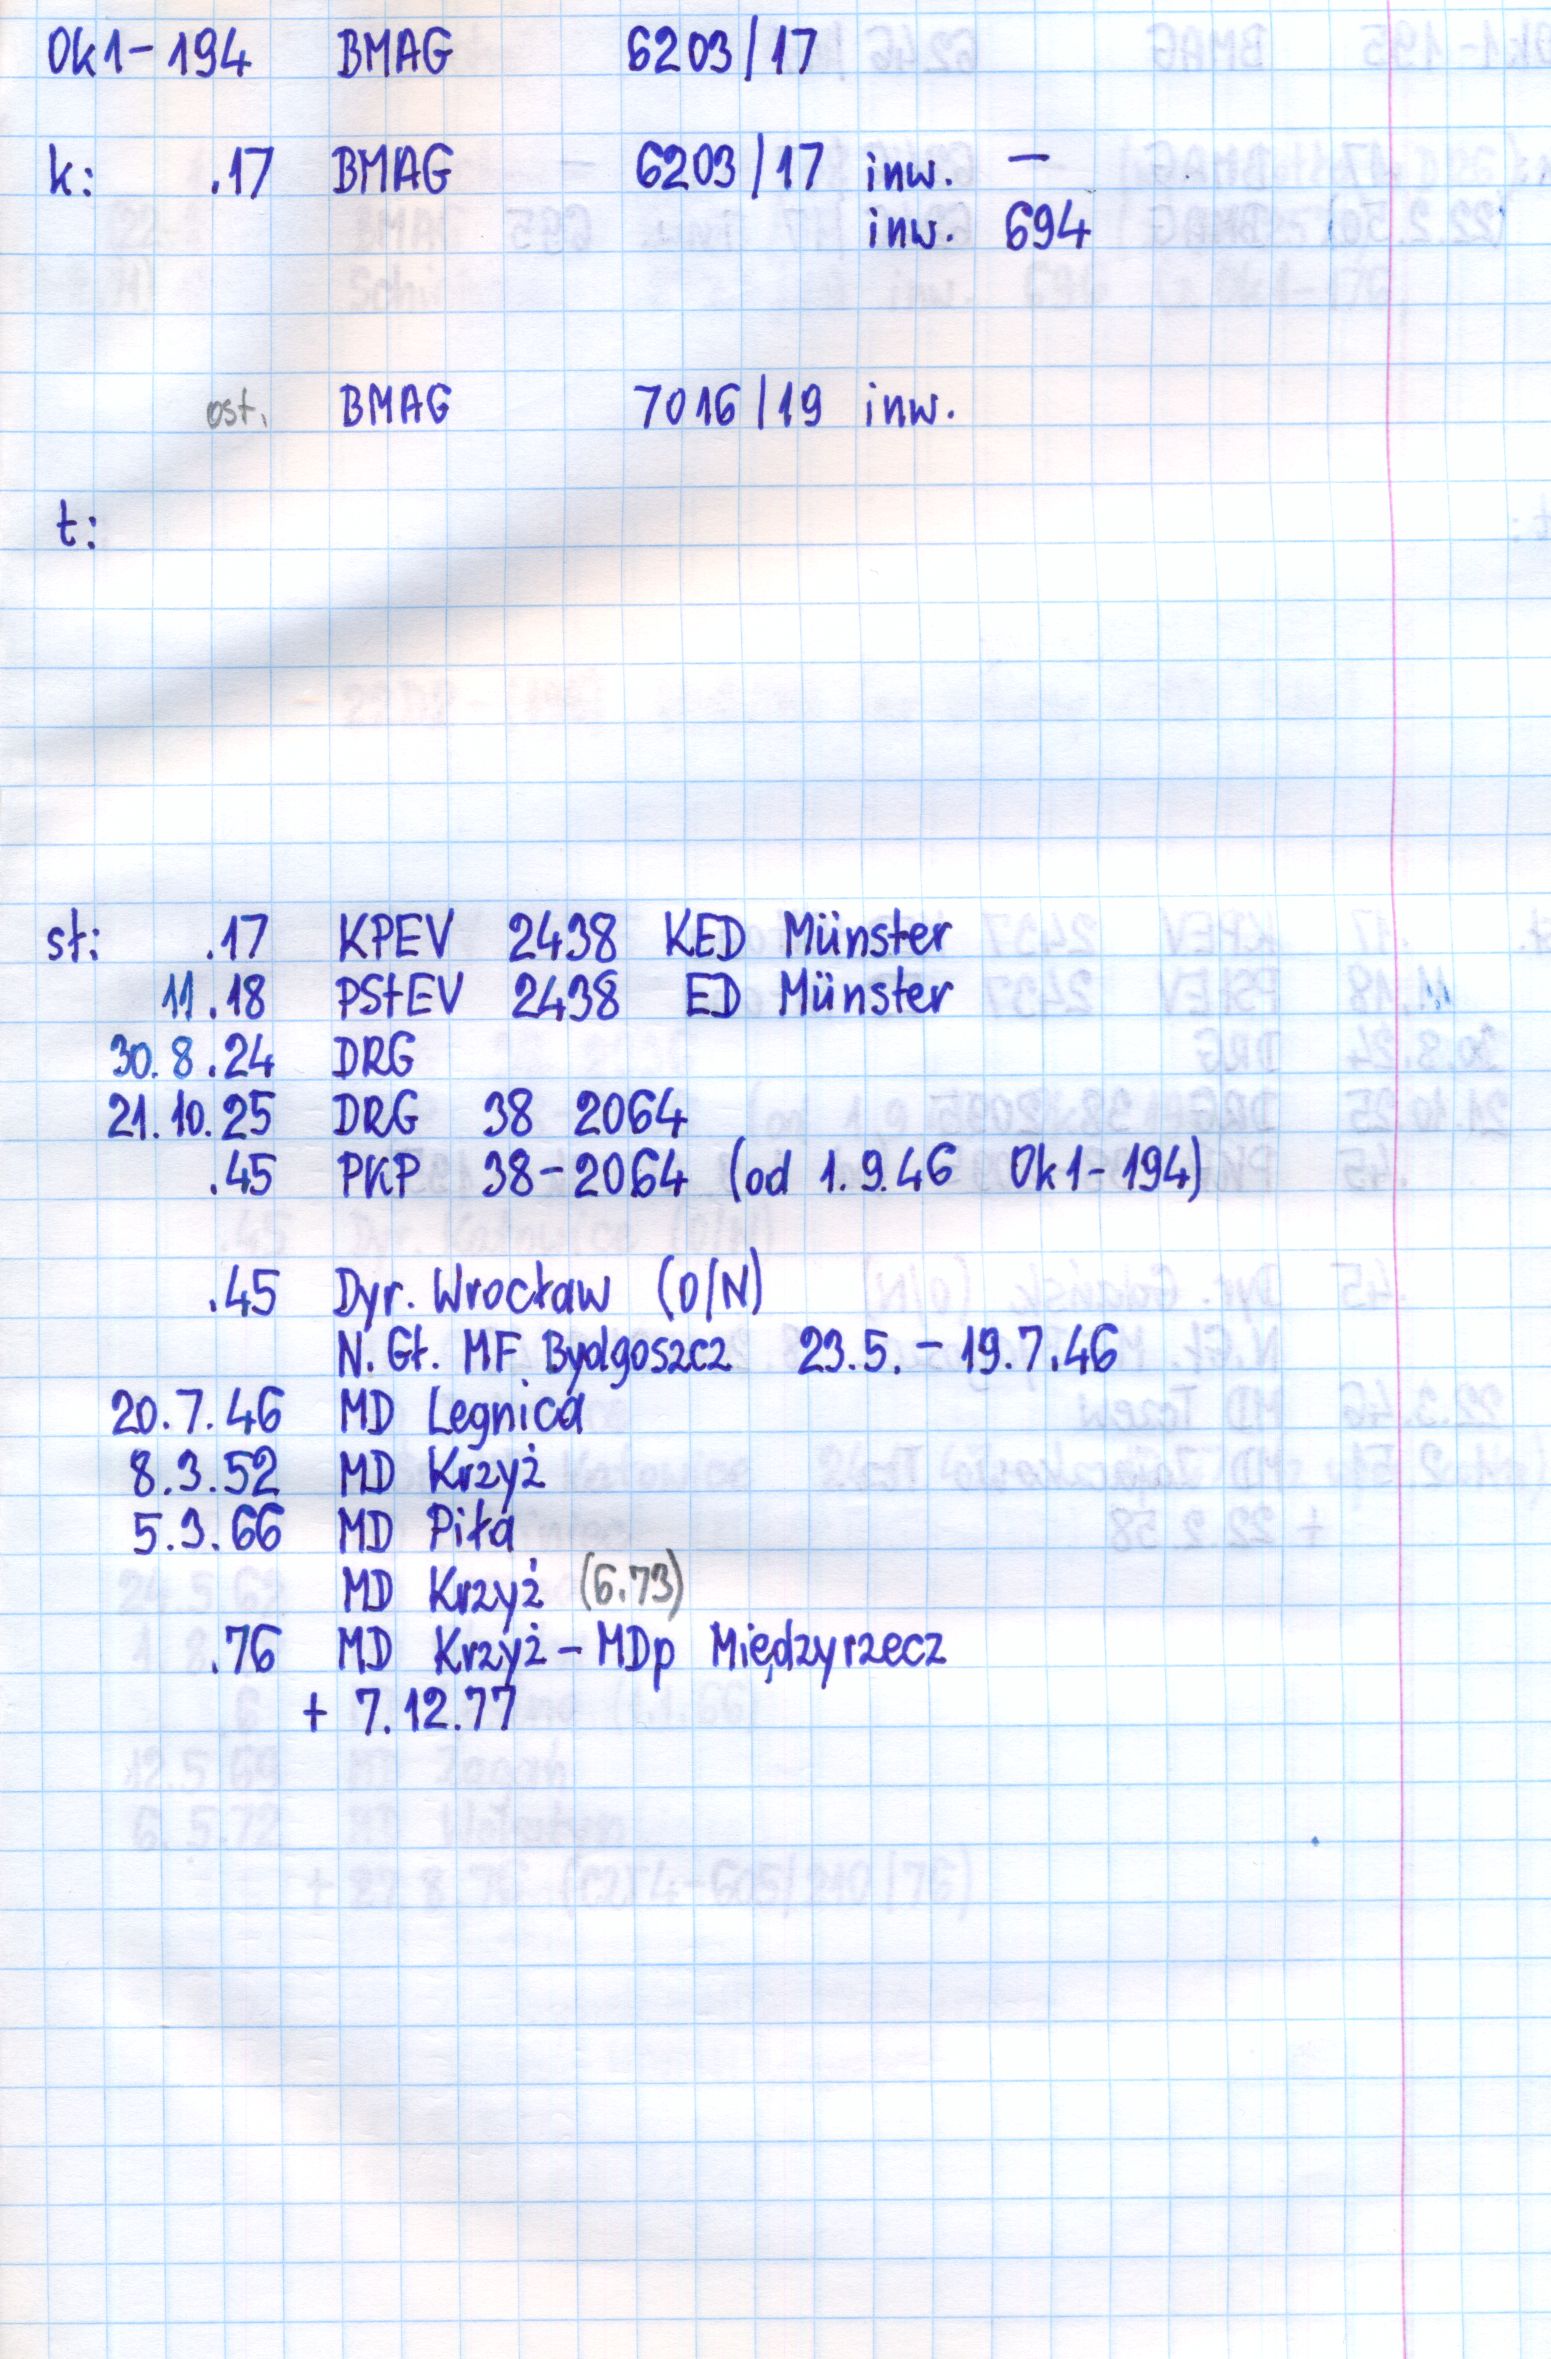 Ok1-194 BMAG 6203/17
k: .17 BMAG 6203/17 inw. —
inw. 694
ost. BMAG 7016/19 inw.
t:
st: .17 KPEV 2438 KED Münster
11.18 PStEV 2438 ED Münster
30.8.24 DRG
21.10.25 DRG 38 2064
.45 PKP 38-2064 (od 1.9.46 Ok1-194)
.45 Dyr. Wrocław (O/N)
N. Gł. MF Bydgoszcz 23.5.-19.7.46
20.7.46 MD Legnica
8.3.52 MD Krzyż
5.3.66 MD Piła
MD Krzyż (6.73)
.76 MD Krzyż-MDp Międzyrzecz
+ 7.12.77